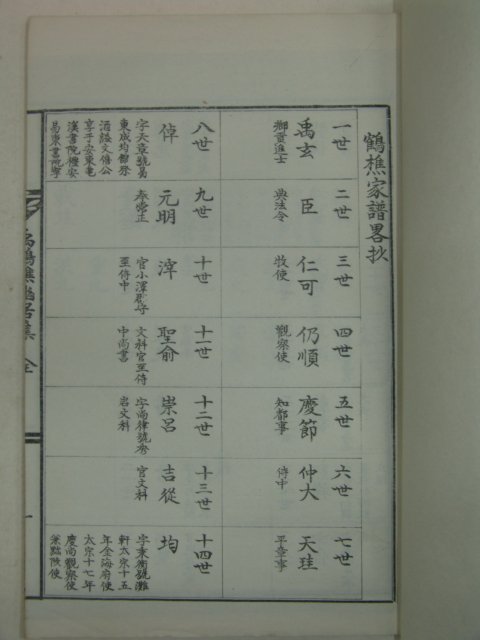 鶴樵家譜畧抄
一世
禹玄
鄉貢進士
二世
臣
典法令
三世
仁可
牧使
四世
仍順
觀察使
五世
慶節
知都事
六世
仲大
侍中
七世
天珪
平章事
八世
倬
字天章號易
東成均祭
酒諡文僖公
享于安東龜
溪書院禮安
易東書院
九世
元明
奉常正
十世
官
至侍中
十一世
聖俞
文科官至侍
中尚書
十二世
崇呂
字尚律號
岩文科
十三世
吉從
官文科
十四世
均
字秉衡號灘
軒太宗十五
年金海府使
太宗十七年
慶尚觀察使
兼黜陟使
鶴樵幽居集 全
一